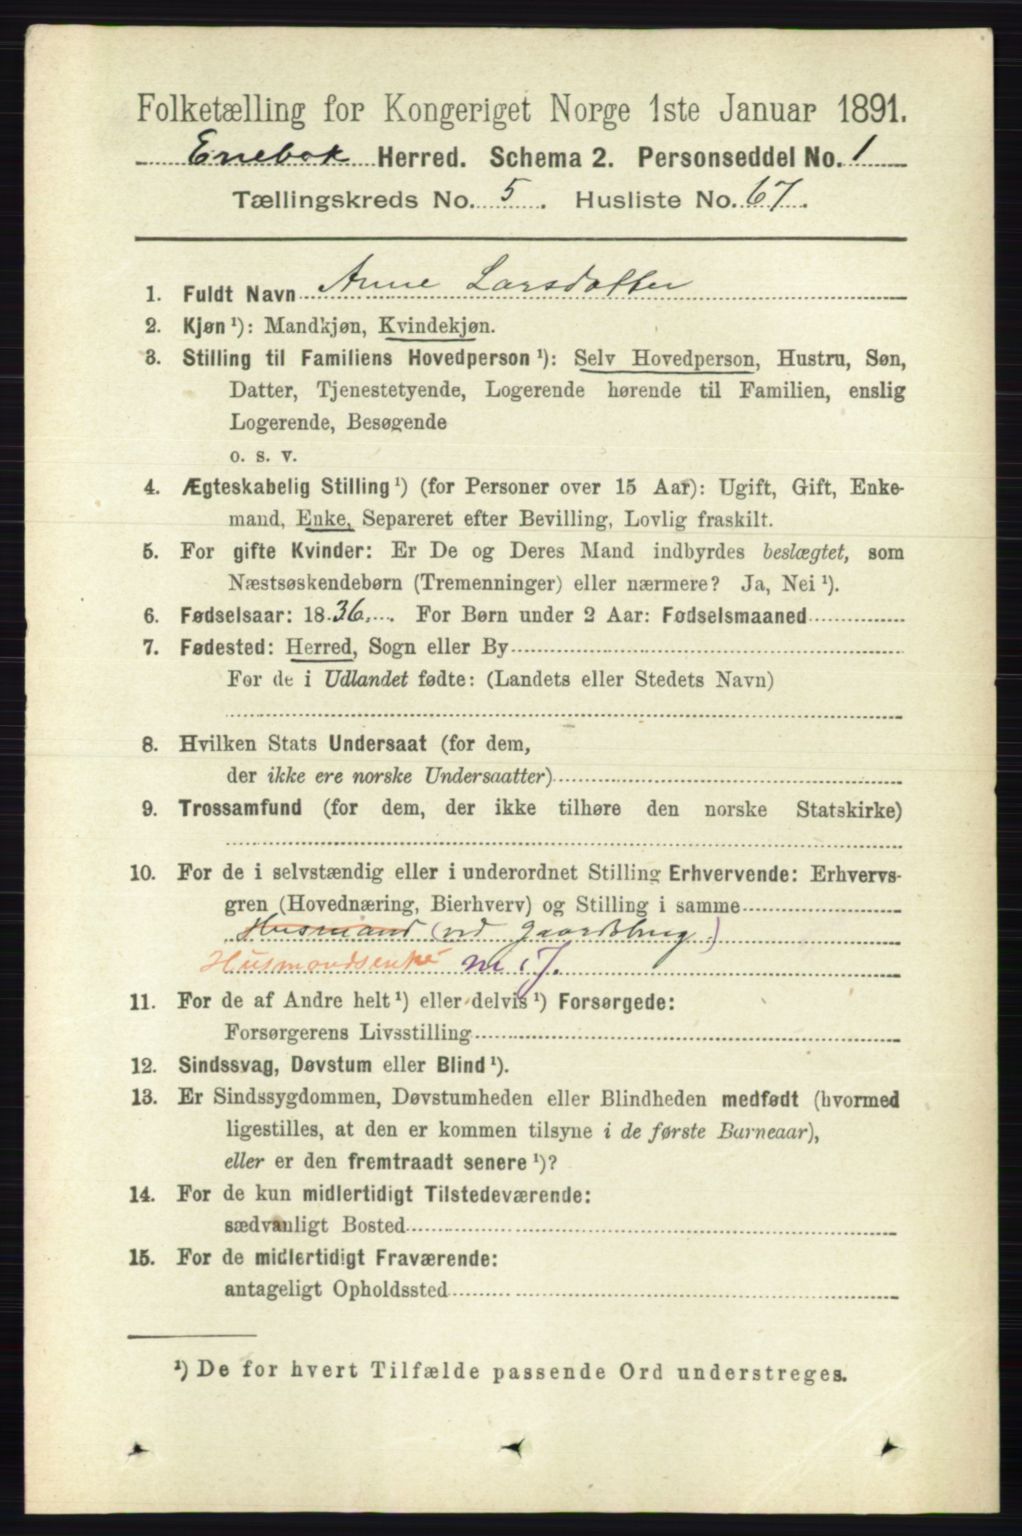 Folketælling for Kongeriget Norge 1ste Januar 1891.
Enebak Herred. Schema 2. Personseddel No. 1
Tællingskreds No. 5. Husliste No. 67.
1. Fuldt Navn Anne Larsdatter
2. Kjøn ¹): Mandkjøn, Kvindekjøn.
3. Stilling til Familiens Hovedperson ¹): Selv Hovedperson, Hustru, Søn,
Datter, Tjenestetyende, Logerende hørende til Familien, enslig
Logerende, Besøgende
o. s. v.
4. Ægteskabelig Stilling ¹) (for Personer over 15 Aar): Ugift, Gift, Enke-
mand, Enke, Separeret efter Bevilling, Lovlig fraskilt.
5. For gifte Kvinder: Er De og Deres Mand indbyrdes beslægtet, som
Næstsøskendebørn (Tremenninger) eller nærmere? Ja, Nei ¹).
6. Fødselsaar: 1836. For Børn under 2 Aar: Fødselsmaaned
7. Fødested: Herred, Sogn eller By
For de i Udlandet fødte: (Landets eller Stedets Navn)
8. Hvilken Stats Undersaat (for dem,
der ikke ere norske Undersaatter)
9. Trossamfund (for dem, der ikke tilhøre den norske Statskirke)
10. For de i selvstændig eller i underordnet Stilling Erhvervende: Erhvervs-
gren (Hovednæring, Bierhverv) og Stilling i samme
Husmand (ved Gaardbrug)
Husmandsenke m. j.
11. For de af Andre helt ¹) eller delvis ¹) Forsørgede:
Forsørgerens Livsstilling
12. Sindssvag, Døvstum eller Blind ¹).
13. Er Sindssygdommen, Døvstumheden eller Blindheden medfødt (hvormed
ligestilles, at den er kommen tilsyne i de første Barneaar),
eller er den fremtraadt senere ¹)?
14. For de kun midlertidigt Tilstedeværende:
sædvanligt Bosted
15. For de midlertidigt Fraværende:
antageligt Opholdssted
¹) De for hvert Tilfælde passende Ord understreges.